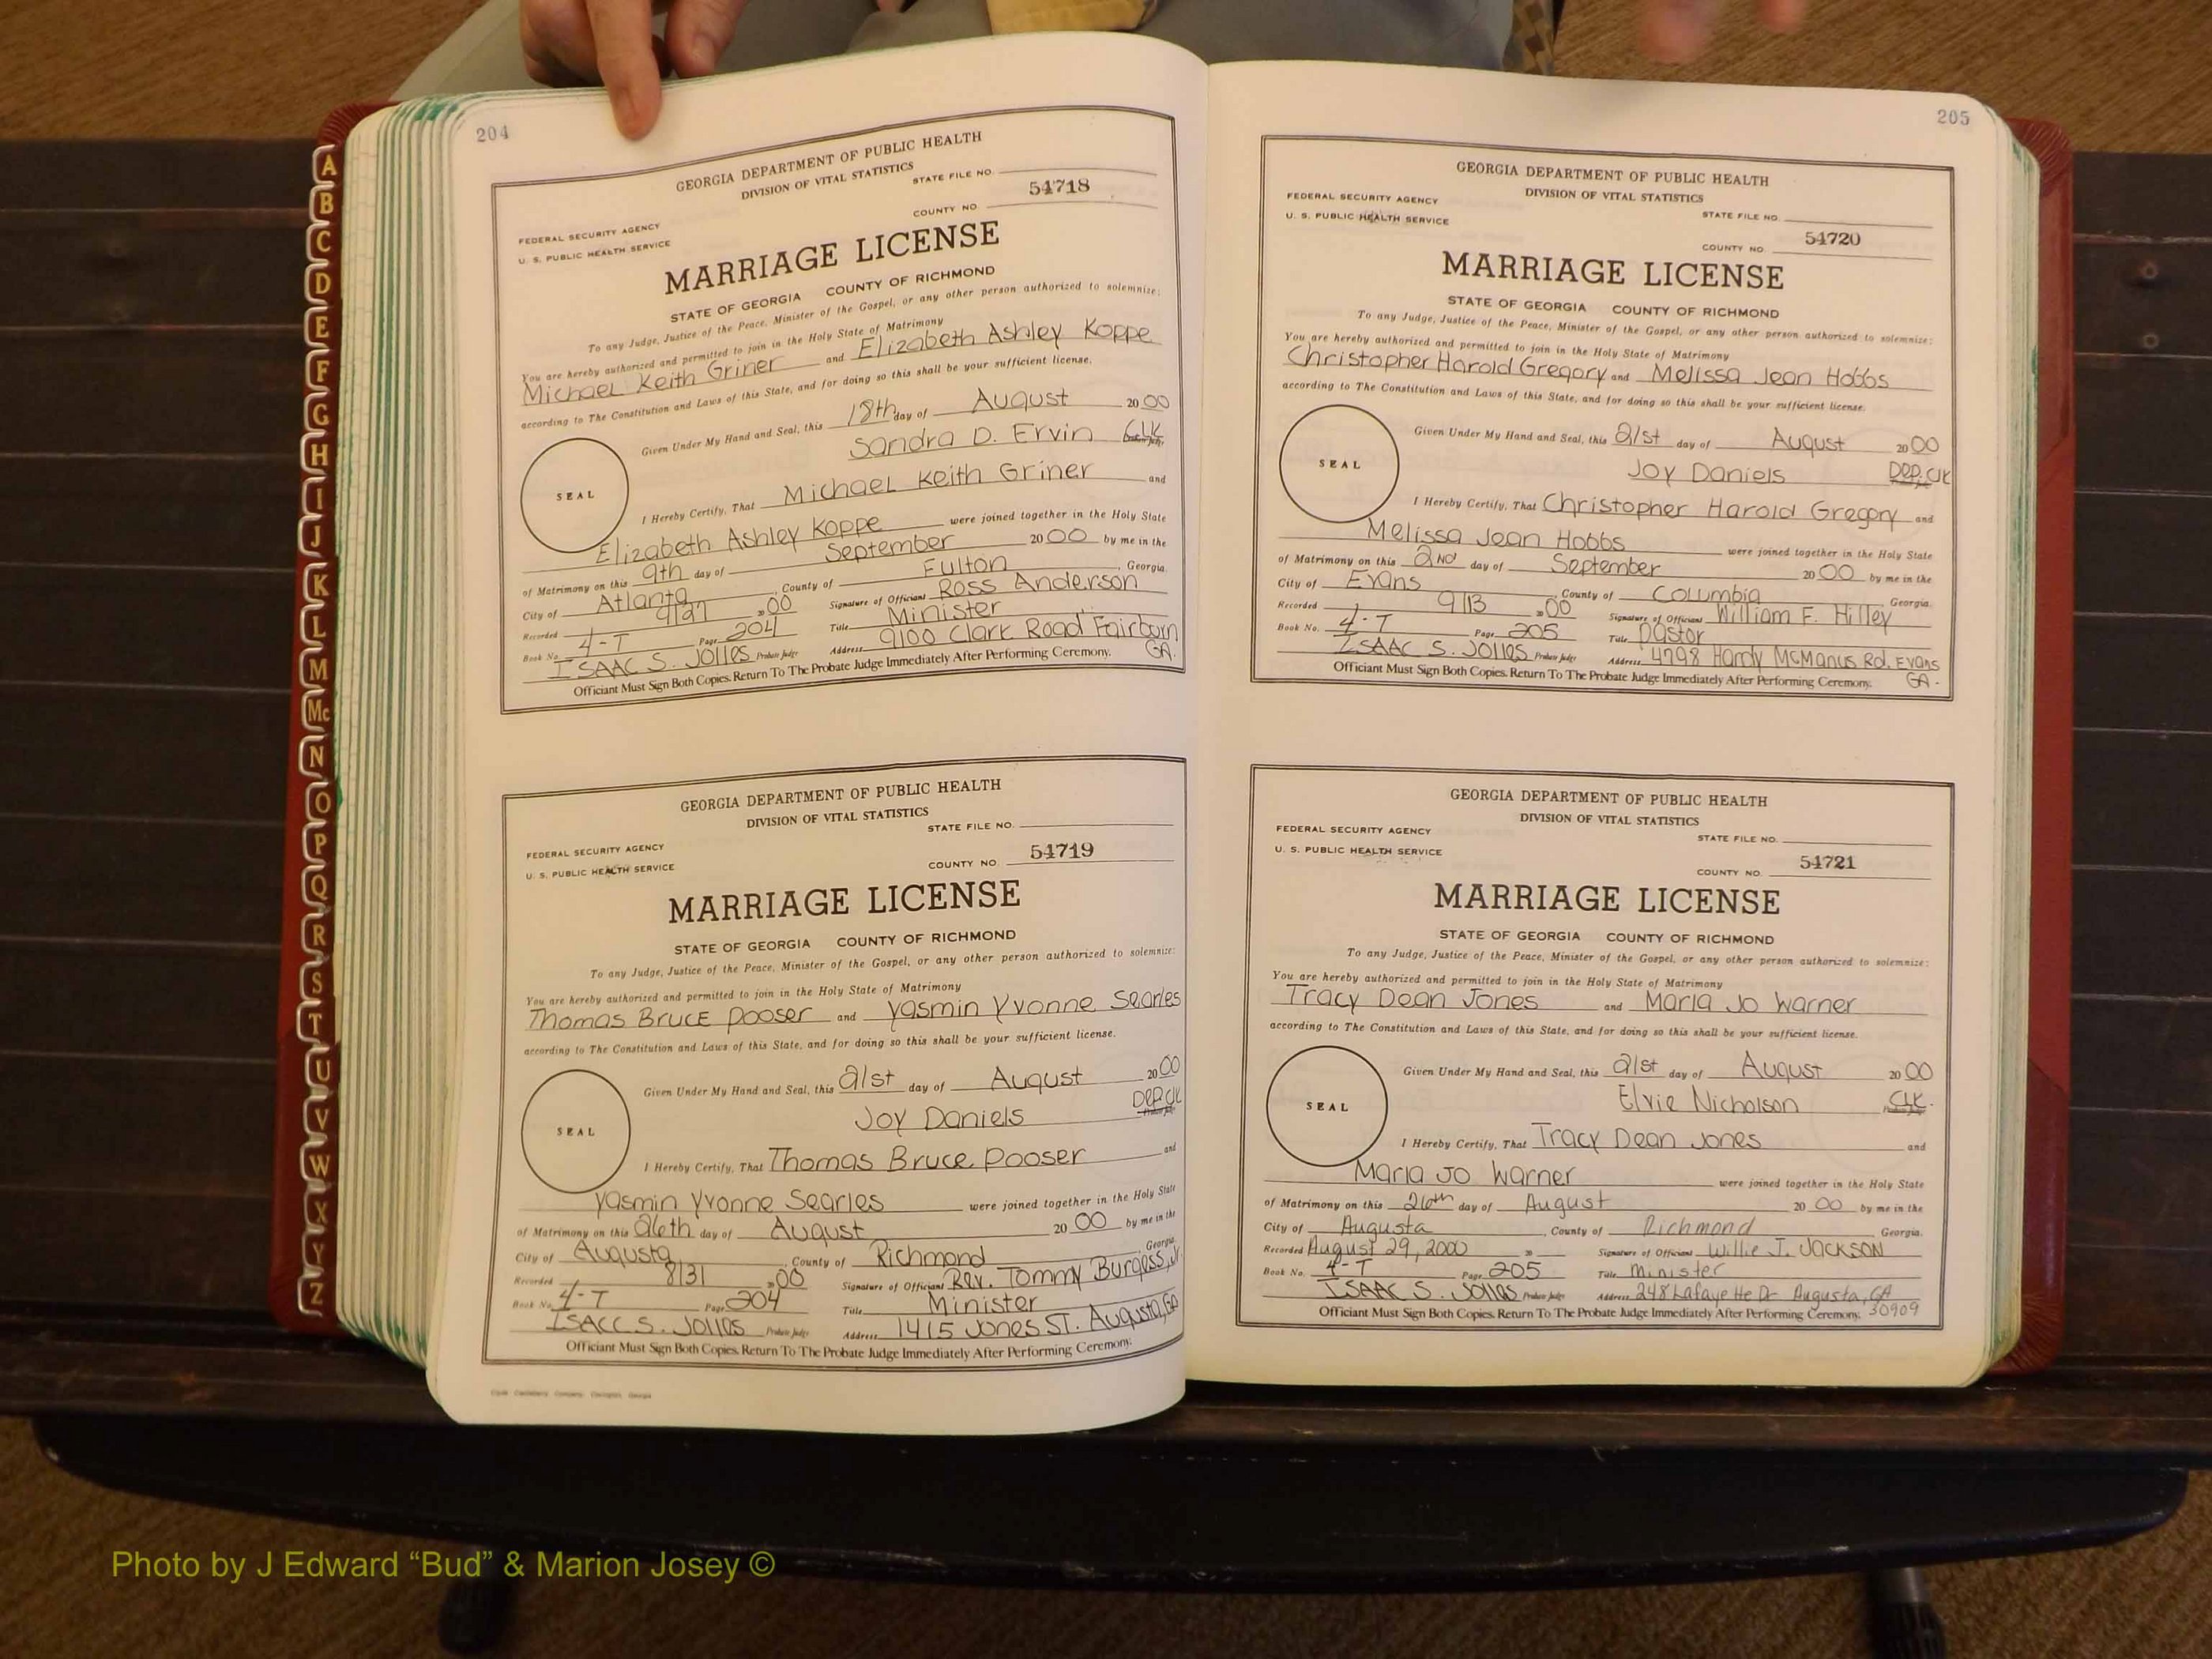 204
GEORGIA DEPARTMENT OF PUBLIC HEALTH
DIVISION OF VITAL STATISTICS
STATE FILE NO.
FEDERAL SECURITY AGENCY
U. S. PUBLIC HEALTH SERVICE
COUNTY NO. 54718
MARRIAGE LICENSE
STATE OF GEORGIA COUNTY OF RICHMOND
To any Judge, Justice of the Peace, Minister of the Gospel, or any other person authorized to solemnize:
You are hereby authorized and permitted to join in the Holy State of Matrimony
Michael Keith Griner and Elizabeth Ashley Koppe
according to The Constitution and Laws of this State, and for doing so this shall be your sufficient license.
Given Under My Hand and Seal, this 18th day of August 2000
Sandra D. Ervin CLK
SEAL
I Hereby Certify, That Michael Keith Griner and
Elizabeth Ashley Koppe were joined together in the Holy State
of Matrimony on this 9th day of September 2000 by me in the
City of Atlanta, County of Fulton, Georgia.
Recorded 9/27 2000 Signature of Officiant Ross Anderson
Book No. 4-T Page 204 Title Minister
ISAAC S. Jolles Probate Judge Address 9100 Clark Road Fairburn GA.
Officiant Must Sign Both Copies. Return To The Probate Judge Immediately After Performing Ceremony.
GEORGIA DEPARTMENT OF PUBLIC HEALTH
DIVISION OF VITAL STATISTICS
STATE FILE NO.
FEDERAL SECURITY AGENCY
U. S. PUBLIC HEALTH SERVICE
COUNTY NO. 54719
MARRIAGE LICENSE
STATE OF GEORGIA COUNTY OF RICHMOND
To any Judge, Justice of the Peace, Minister of the Gospel, or any other person authorized to solemnize:
You are hereby authorized and permitted to join in the Holy State of Matrimony
Thomas Bruce Pooser and Yasmin Yvonne Searles
according to The Constitution and Laws of this State, and for doing so this shall be your sufficient license.
Given Under My Hand and Seal, this 21st day of August 2000
Joy Daniels Dep. Clk
SEAL
I Hereby Certify, That Thomas Bruce Pooser and
Yasmin Yvonne Searles were joined together in the Holy State
of Matrimony on this 26th day of August 2000 by me in the
City of Augusta, County of Richmond, Georgia.
Recorded 8/31 2000 Signature of Officiant Rev. Tommy Burgess, Jr.
Book No. 4-T Page 204 Title Minister
ISACC S. Jolles Probate Judge Address 1415 Jones ST. Augusta, GA
Officiant Must Sign Both Copies. Return To The Probate Judge Immediately After Performing Ceremony.
205
GEORGIA DEPARTMENT OF PUBLIC HEALTH
DIVISION OF VITAL STATISTICS
FEDERAL SECURITY AGENCY
U. S. PUBLIC HEALTH SERVICE
STATE FILE NO.
COUNTY NO. 54720
MARRIAGE LICENSE
STATE OF GEORGIA COUNTY OF RICHMOND
To any Judge, Justice of the Peace, Minister of the Gospel, or any other person authorized to solemnize:
You are hereby authorized and permitted to join in the Holy State of Matrimony
Christopher Harold Gregory and Melissa Jean Hobbs
according to The Constitution and Laws of this State, and for doing so this shall be your sufficient license.
Given Under My Hand and Seal, this 21st day of August 2000
Joy Daniels Dep. Clk
SEAL
I Hereby Certify, That Christopher Harold Gregory and
Melissa Jean Hobbs were joined together in the Holy State
of Matrimony on this 2ND day of September 2000 by me in the
City of Evans, County of Columbia, Georgia.
Recorded 9/13 2000 Signature of Officiant William F. Hilley
Book No. 4-T Page 205 Title pastor
ISAAC S. Jolles Probate Judge Address 4798 Hardy McManus Rd. Evans GA.
Officiant Must Sign Both Copies. Return To The Probate Judge Immediately After Performing Ceremony.
GEORGIA DEPARTMENT OF PUBLIC HEALTH
DIVISION OF VITAL STATISTICS
FEDERAL SECURITY AGENCY
U. S. PUBLIC HEALTH SERVICE
STATE FILE NO.
COUNTY NO. 54721
MARRIAGE LICENSE
STATE OF GEORGIA COUNTY OF RICHMOND
To any Judge, Justice of the Peace, Minister of the Gospel, or any other person authorized to solemnize:
You are hereby authorized and permitted to join in the Holy State of Matrimony
Tracy Dean Jones and Maria Jo Warner
according to The Constitution and Laws of this State, and for doing so this shall be your sufficient license.
Given Under My Hand and Seal, this 21st day of August 2000
Elvie Nicholson CLK.
SEAL
I Hereby Certify, That Tracy Dean Jones and
Maria Jo Warner were joined together in the Holy State
of Matrimony on this 26th day of August 2000 by me in the
City of Augusta, County of Richmond Georgia.
Recorded August 29, 2000 20 Signature of Officiant Willie J. JACKSON
Book No. 4-T Page 205 Title minister
ISAAC S. Jolles Probate Judge Address 248 Lafayette Dr Augusta, GA 30909
Officiant Must Sign Both Copies. Return To The Probate Judge Immediately After Performing Ceremony.
A
B
C
D
E
F
G
H
I
J
K
L
M
Mc
N
O
P
Q
R
S
T
U
V
W
X
Y
Z
Photo by J Edward “Bud” & Marion Josey ©